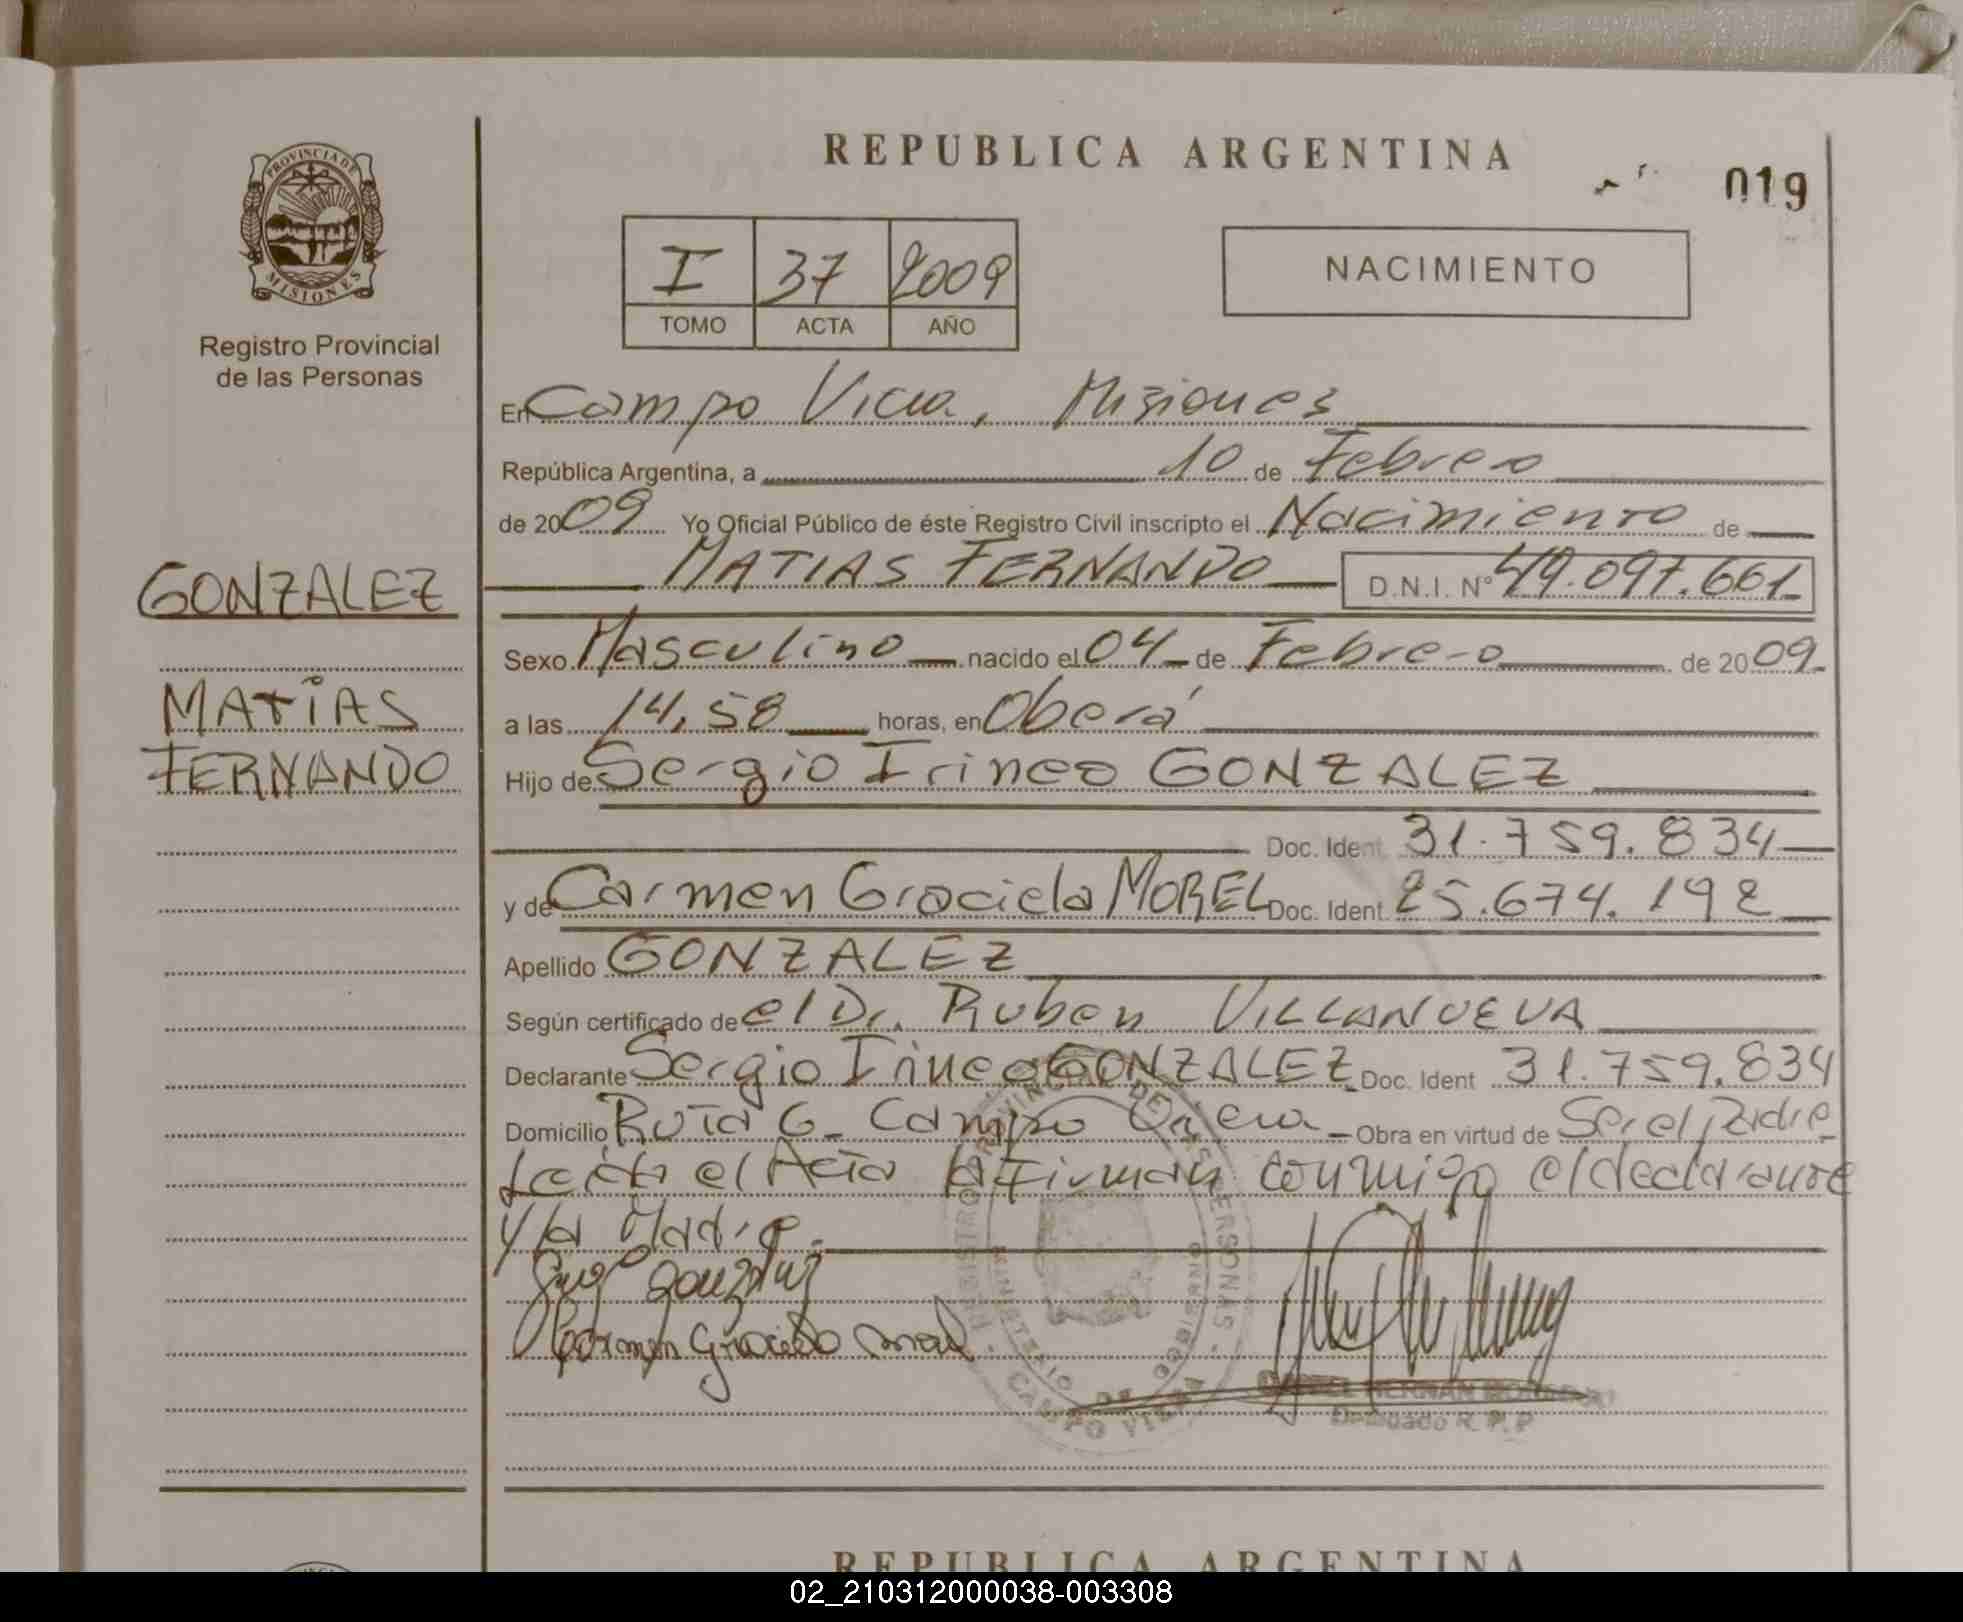 REPUBLICA ARGENTINA
019
PROVINCIA DE
MISIONES
Registro Provincial
de las Personas
I 37 2009
TOMO ACTA AÑO
NACIMIENTO
En Campo Viera, Misiones
República Argentina, a 10 de Febrero
de 2009 Yo Oficial Público de éste Registro Civil inscripto el Nacimiento de
MATIAS FERNANDO D.N.I. Nº 49.097.661
GONZALEZ
MATIAS
FERNANDO
Sexo Masculino nacido el 04 de Febrero de 2009
a las 14,58 horas, en Oberá
Hijo de Sergio Irineo GONZALEZ
Doc. Ident 31.759.834
y de Carmen Graciela MOREL Doc. Ident 25.674.192
Apellido GONZALEZ
Según certificado de el Dr. Ruben VILLANUEVA
Declarante Sergio Irineo GONZALEZ Doc. Ident 31.759.834
Domicilio Ruta 6 - Campo Viera - Obra en virtud de Ser el Padre
Leida el Acta la firman conmigo el declarante
y la Madre.
Sergio Gonzalez
Carmen Graciela Morel
REGISTRO PROVINCIAL DE LAS PERSONAS
MINISTERIO DE GOBIERNO
CAMPO VIERA
HERNAN
Delegado R.P.P
REPUBLICA ARGENTINA
02_210312000038-003308